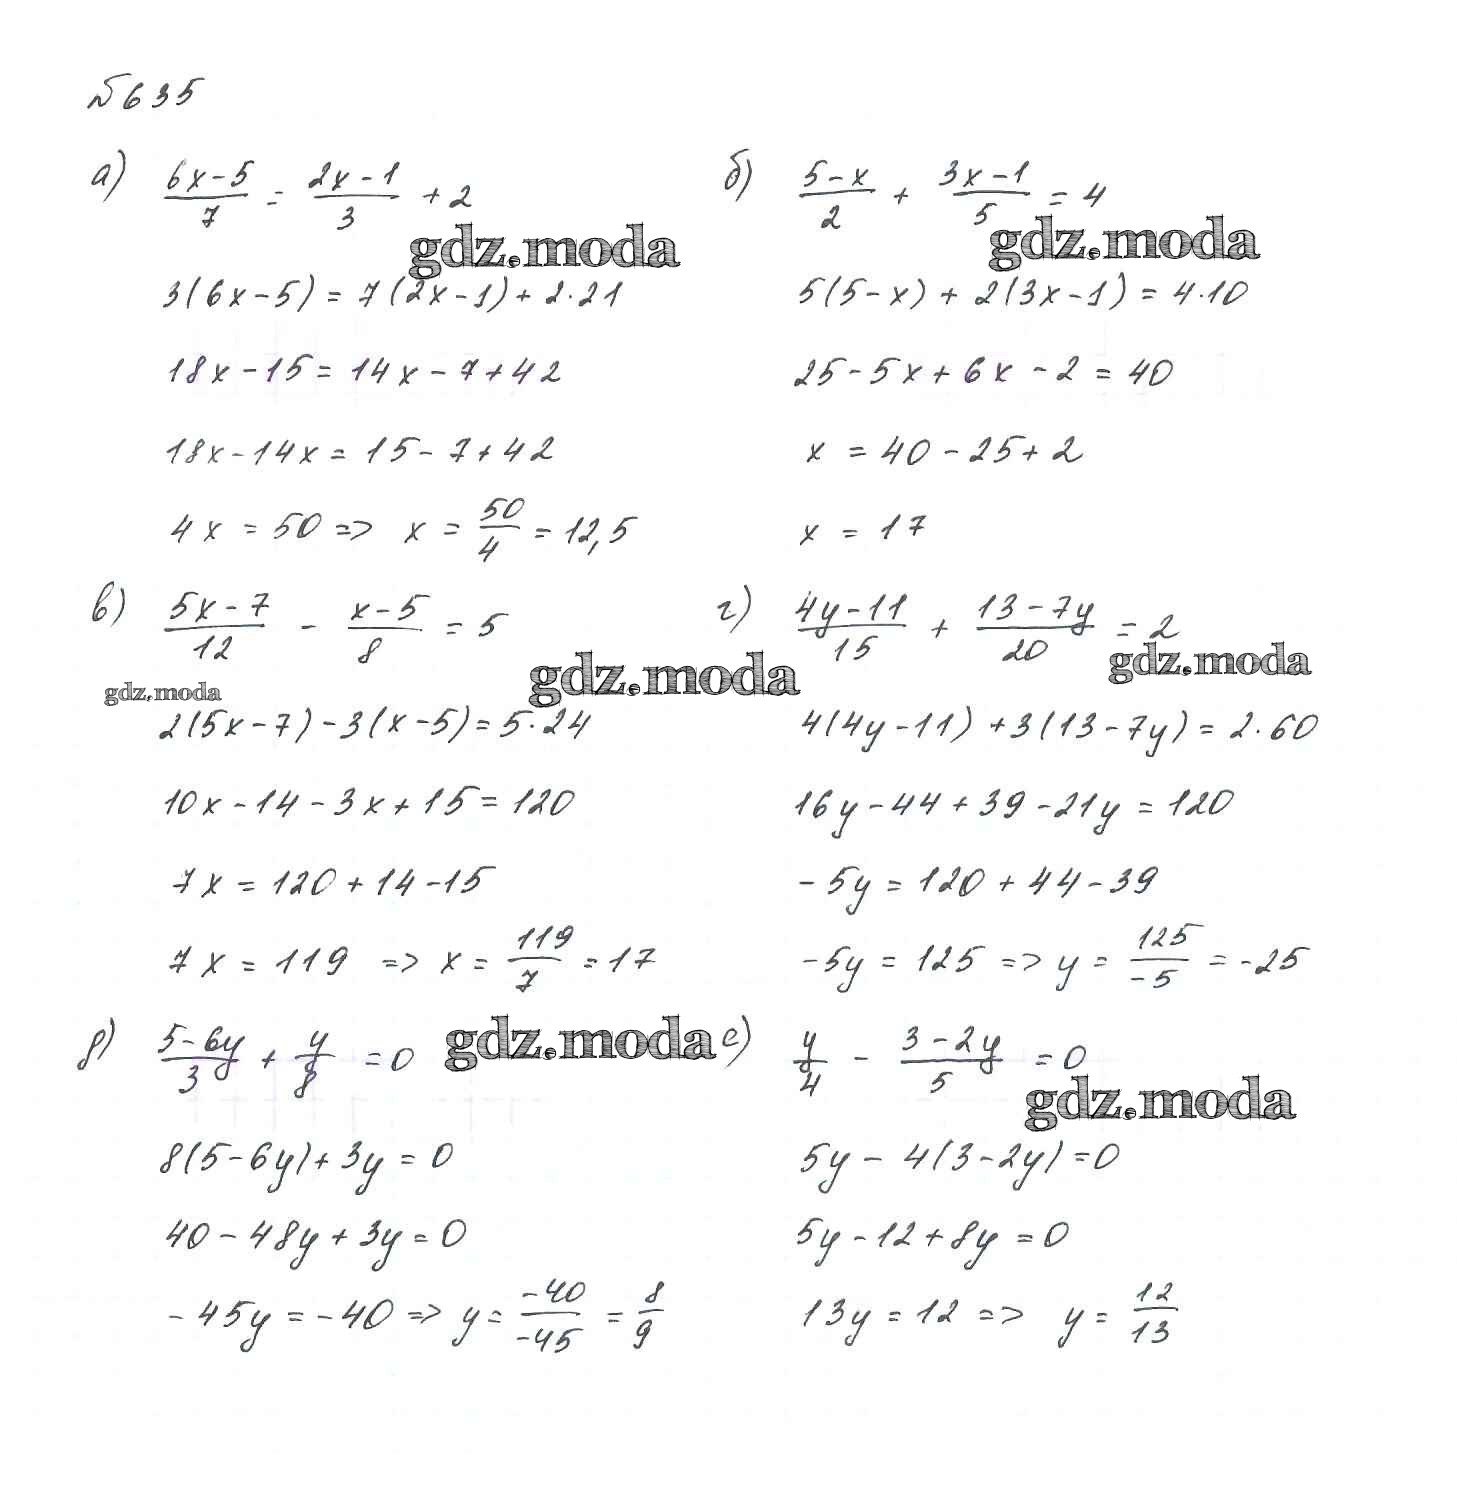 №635
а) (6x-5)/7 = (2x-1)/3 + 2
gdz.moda
3(6x-5) = 7(2x-1) + 2·21
18x-15 = 14x-7+42
18x-14x = 15-7+42
4x = 50 => x = 50/4 = 12,5
б) (5-x)/2 + (3x-1)/5 = 4
gdz.moda
5(5-x) + 2(3x-1) = 4·10
25-5x+6x-2 = 40
x = 40-25+2
x = 17
в) (5x-7)/12 - (x-5)/8 = 5
gdz.moda
gdz.moda
2(5x-7)-3(x-5) = 5·24
10x-14-3x+15 = 120
7x = 120+14-15
7x = 119 => x = 119/7 = 17
г) (4y-11)/15 + (13-7y)/20 = 2
gdz.moda
4(4y-11)+3(13-7y) = 2·60
16y-44+39-21y = 120
-5y = 120+44-39
-5y = 125 => y = 125/-5 = -25
д) (5-6y)/3 + y/8 = 0
gdz.moda
8(5-6y)+3y = 0
40-48y+3y = 0
-45y = -40 => y = -40/-45 = 8/9
е) y/4 - (3-2y)/5 = 0
gdz.moda
5y-4(3-2y) = 0
5y-12+8y = 0
13y = 12 => y = 12/13